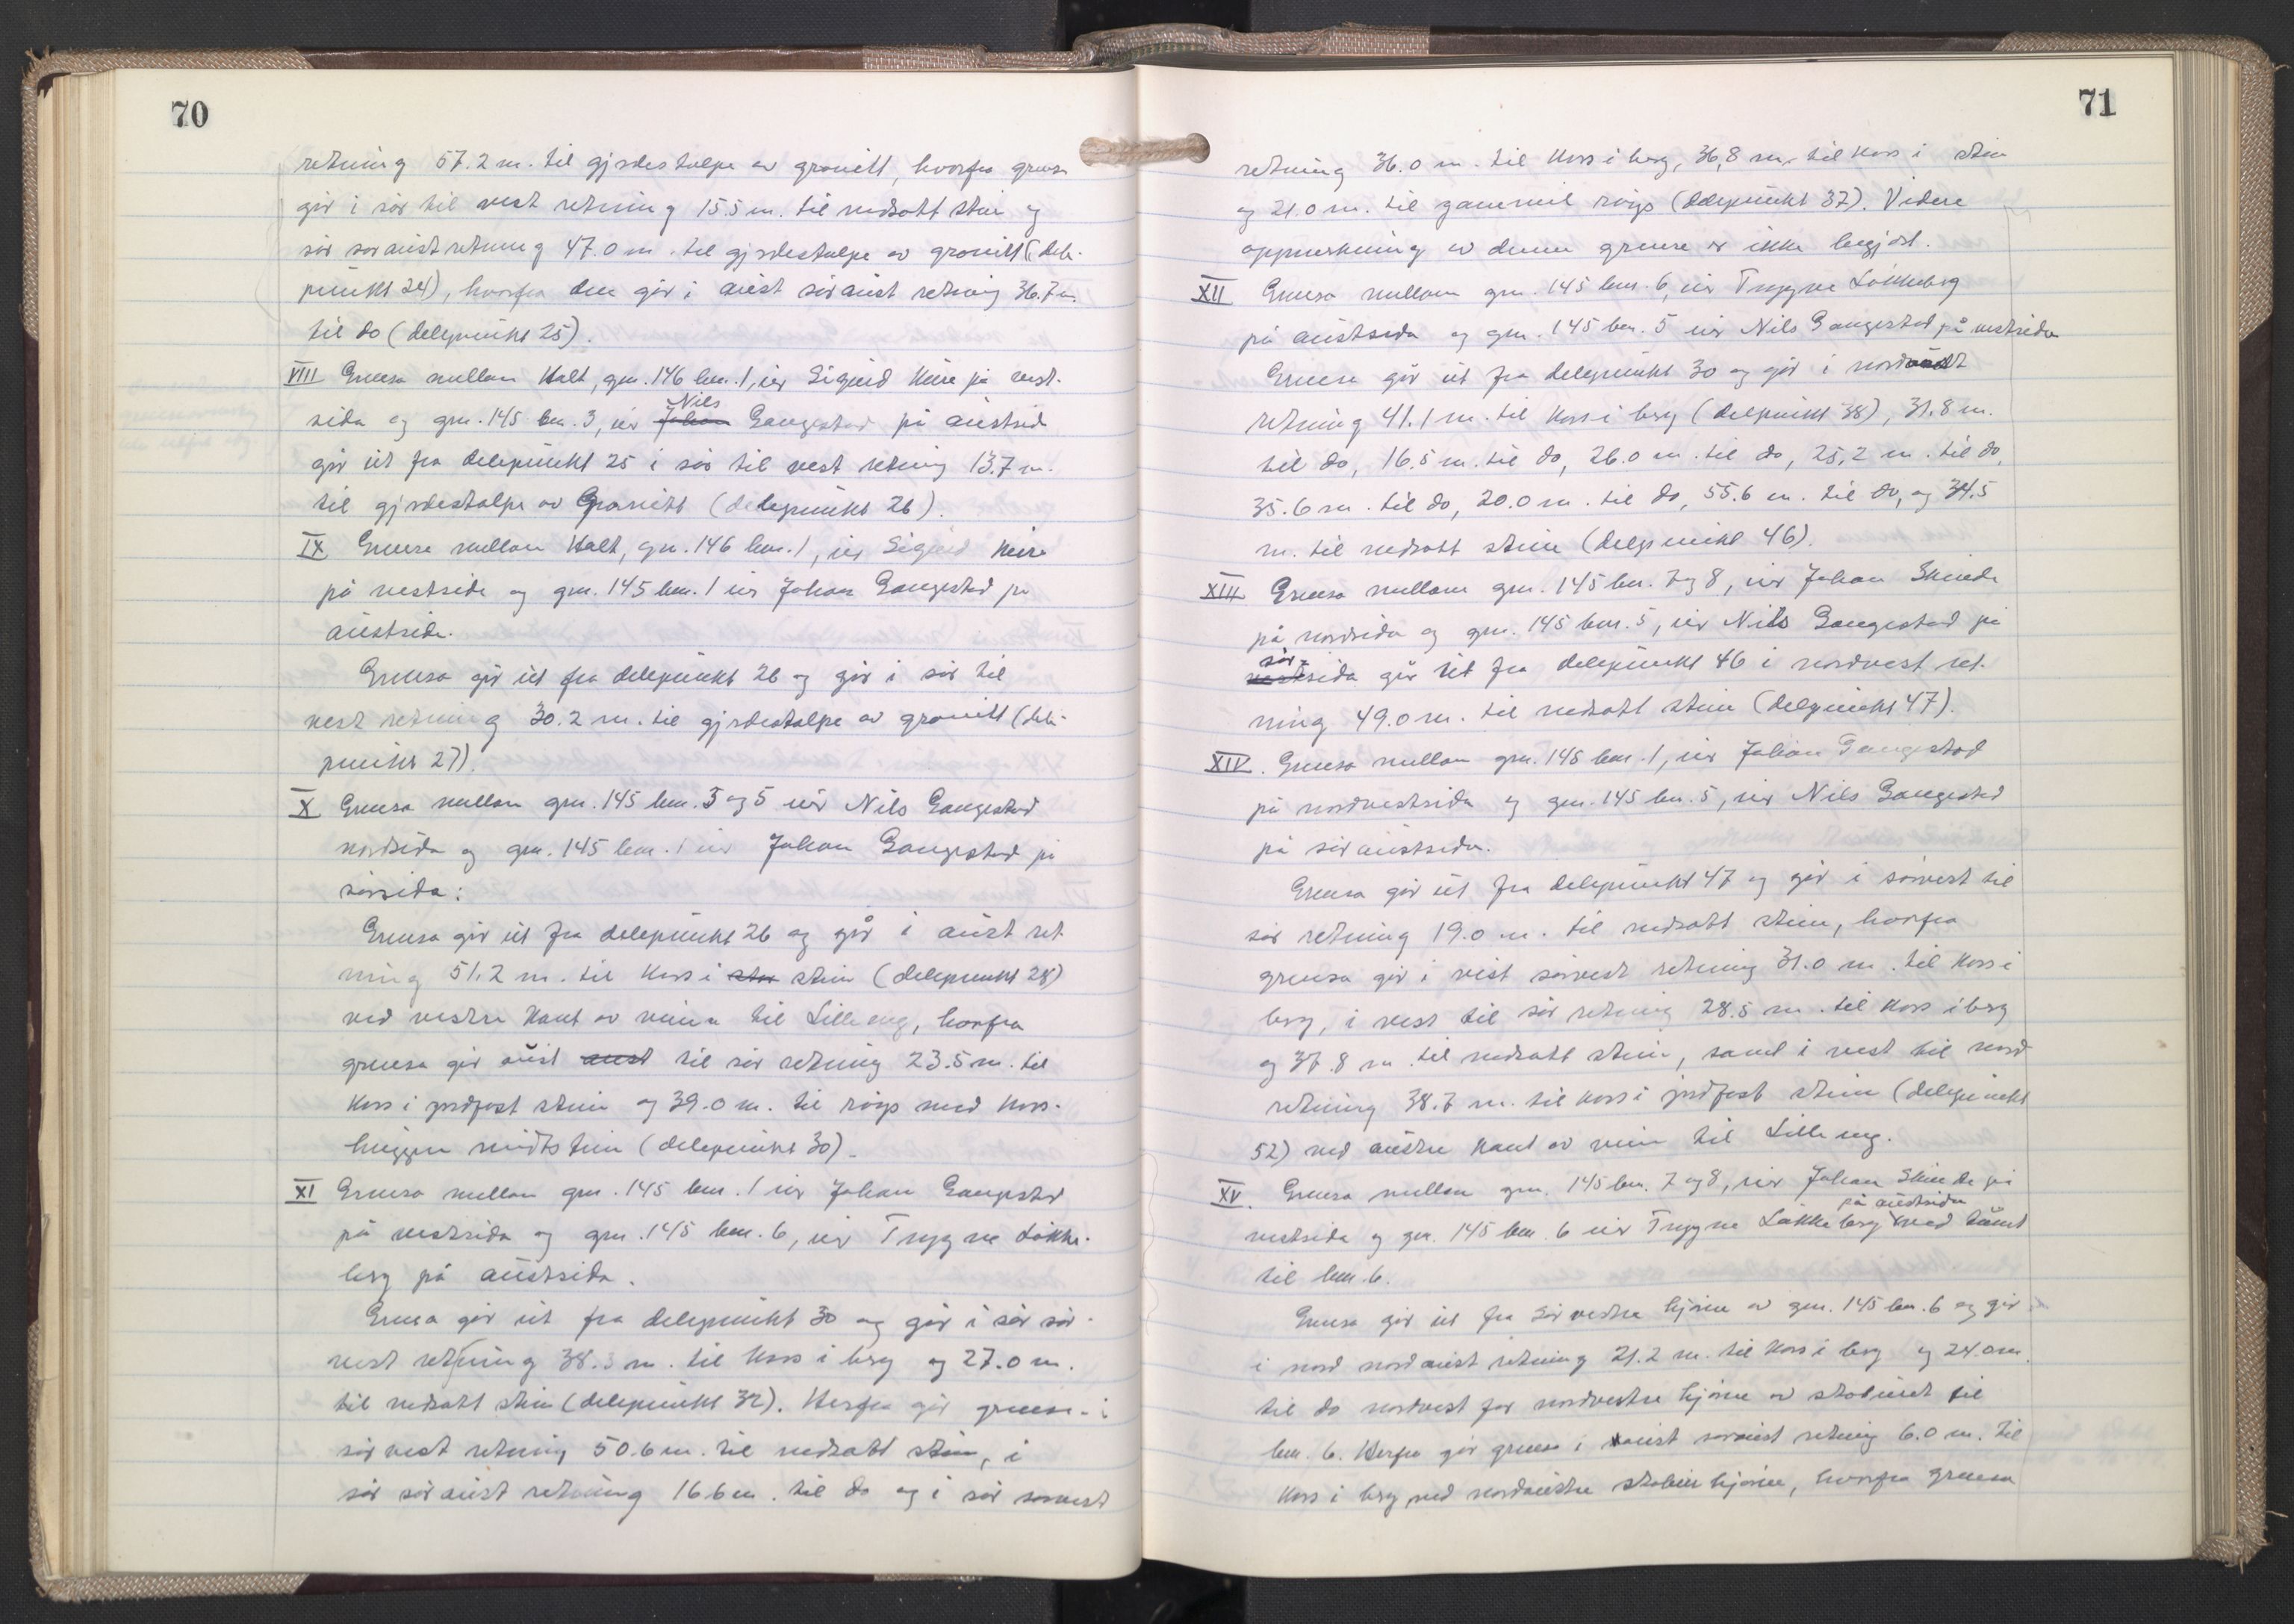 70
retning 57.2 m. til gjerdestolpe av granitt, hvorfra grensa
går i sør til vest retning 15.5 m. til nedsatt stein og
sør søraust retning 47.0 m. til gjerdestolpe av granitt (dele-
punkt 24), hvorfra den går i aust søraust retning 36.7 m.
til do (delepunkt 25).
VIII Grensa mellom Holt, gnr. 146 bnr. 1, eier Sigurd på vest-
sida og gnr. 145 bnr. 3, eier Nils Gangestad på austsida
går ut fra delepunkt 25 i sør til vest retning 13.7 m.
til gjerdestolpe av Granitt (delepunkt 26).
IX Grensa mellom Holt, gnr. 146 bnr. 1, eier Sigurd
på vestsida og gnr. 145 bnr. 1 eier Johan Gangestad på
austsida.
Grensa går ut fra delepunkt 26 og går i sør til
vest retning 30.2 m. til gjerdestolpe av granitt (dele-
punkt 27).
X Grensa mellom gnr. 145 bnr. 3 og 5 eier Nils Gangestad
nordsida og gnr. 145 bnr. 1 eier Johan Gangestad på
sørsida:
Grensa går ut fra delepunkt 26 og går i aust ret-
ning 51.2 m. til kors i stein (delepunkt 28)
ved vestre kant av veien til Lilleeng, hvorfra
grensa går aust til sør retning 23.5 m. til
kors i jordfast stein og 39.0 m. til røys med kors-
huggen midtstein (delepunkt 30).
XI Grensa mellom gnr. 145 bnr. 1 eier Johan Gangestad
på vestsida og gnr. 145 bnr. 6, eier Trygve Løkke-
berg på austsida.
Grensa går ut fra delepunkt 30 og går i sør sør-
vest retning 38.3 m. til kors i berg og 27.0 m.
til nedsatt stein (delepunkt 32). Herfra går grensa i
sørvest retning 50.6 m. til nedsatt stein, i
sør søraust retning 16.6 m. til do og i sør sørvest
71
retning 36.0 m. til kors i berg, 36,8 m. til kors i stein
og 21.0 m. til gammel røys (delepunkt 37). Videre
oppmerkning av denne grense er ikke begjært.
XII Grensa mellom gnr. 145 bnr. 6, eier Trygve Løkkeberg
på austsida og gnr. 145 bnr. 5 eier Nils Gangestad på vestsida
Grensa går ut fra delepunkt 30 og går i nord
retning 41.1 m. til kors i berg (delepunkt 38), 31.8 m.
til do, 16.5 m. til do, 26.0 m. til do, 25,2 m. til do,
35.6 m. til do, 20.0 m. til do, 55.6 m. til do, og 34.5
m. til nedsatt stein (delepunkt 46).
XIII Grensa mellom gnr. 145 bnr. 7 og 8, eier Johan
på nordsida og gnr. 145 bnr. 5, eier Nils Gangestad på
sør-sida går ut fra delepunkt 46 i nordvest ret-
ning 49.0 m. til nedsatt stein (delepunkt 47).
XIV. Grensa mellom gnr. 145 bnr. 1, eier Johan Gangestad
på nordvestsida og gnr. 145 bnr. 5, eier Nils Gangestad
på søraustsida.
Grensa går ut fra delepunkt 47 og går i sørvest til
sør retning 19.0 m. til nedsatt stein, hvorfra
grensa går i vest sørvest retning 31.0 m. til kors i
berg, i vest til sør retning 28.5 m. til kors i berg
og 37.8 m. til nedsatt stein, samt i vest til nord
retning 38.7 m. til kors i jordfast stein (delepunkt
52) ved austre kant av veien til Lilleeng.
XV. Grensa mellom gnr. 145 bnr. 7 og 8, eier Johan på
vestsida og gnr. 145 bnr. 6 eier Trygve Løkkeberg på austsida ved tomt
til bnr. 6.
Grensa går ut fra sørvestre hjørne av gnr. 145 bnr. 6 og går
i nord nordaust retning 21.2 m. til kors i berg og 24.0 m.
til do nordvest for nordvestre hjørne av stabburet til
bnr. 6. Herfra går grensa i aust søraust retning 6.0 m. til
kors i berg ved nordaustre hjørne, hvorfra grensa